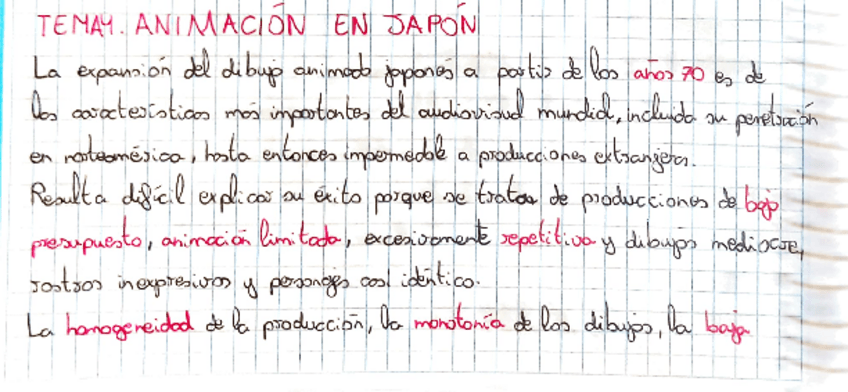 TEMA4. ANIMACIÓN EN JAPÓN
La expansión del dibujo animado japonés a partir de los años 70 es de
las características más importantes del audiovisual mundial, incluida su penetración
en norteamérica, hasta entonces impermeable a producciones extranjeras.
Resulta difícil explicar su éxito porque se tratan de producciones de bajo
presupuesto, animación limitada, excesivamente repetitiva y dibujos mediocre,
rostros inexpresivos y personajes casi idéntico.
La homogeneidad de la producción, la monotonía de los dibujos, la baja